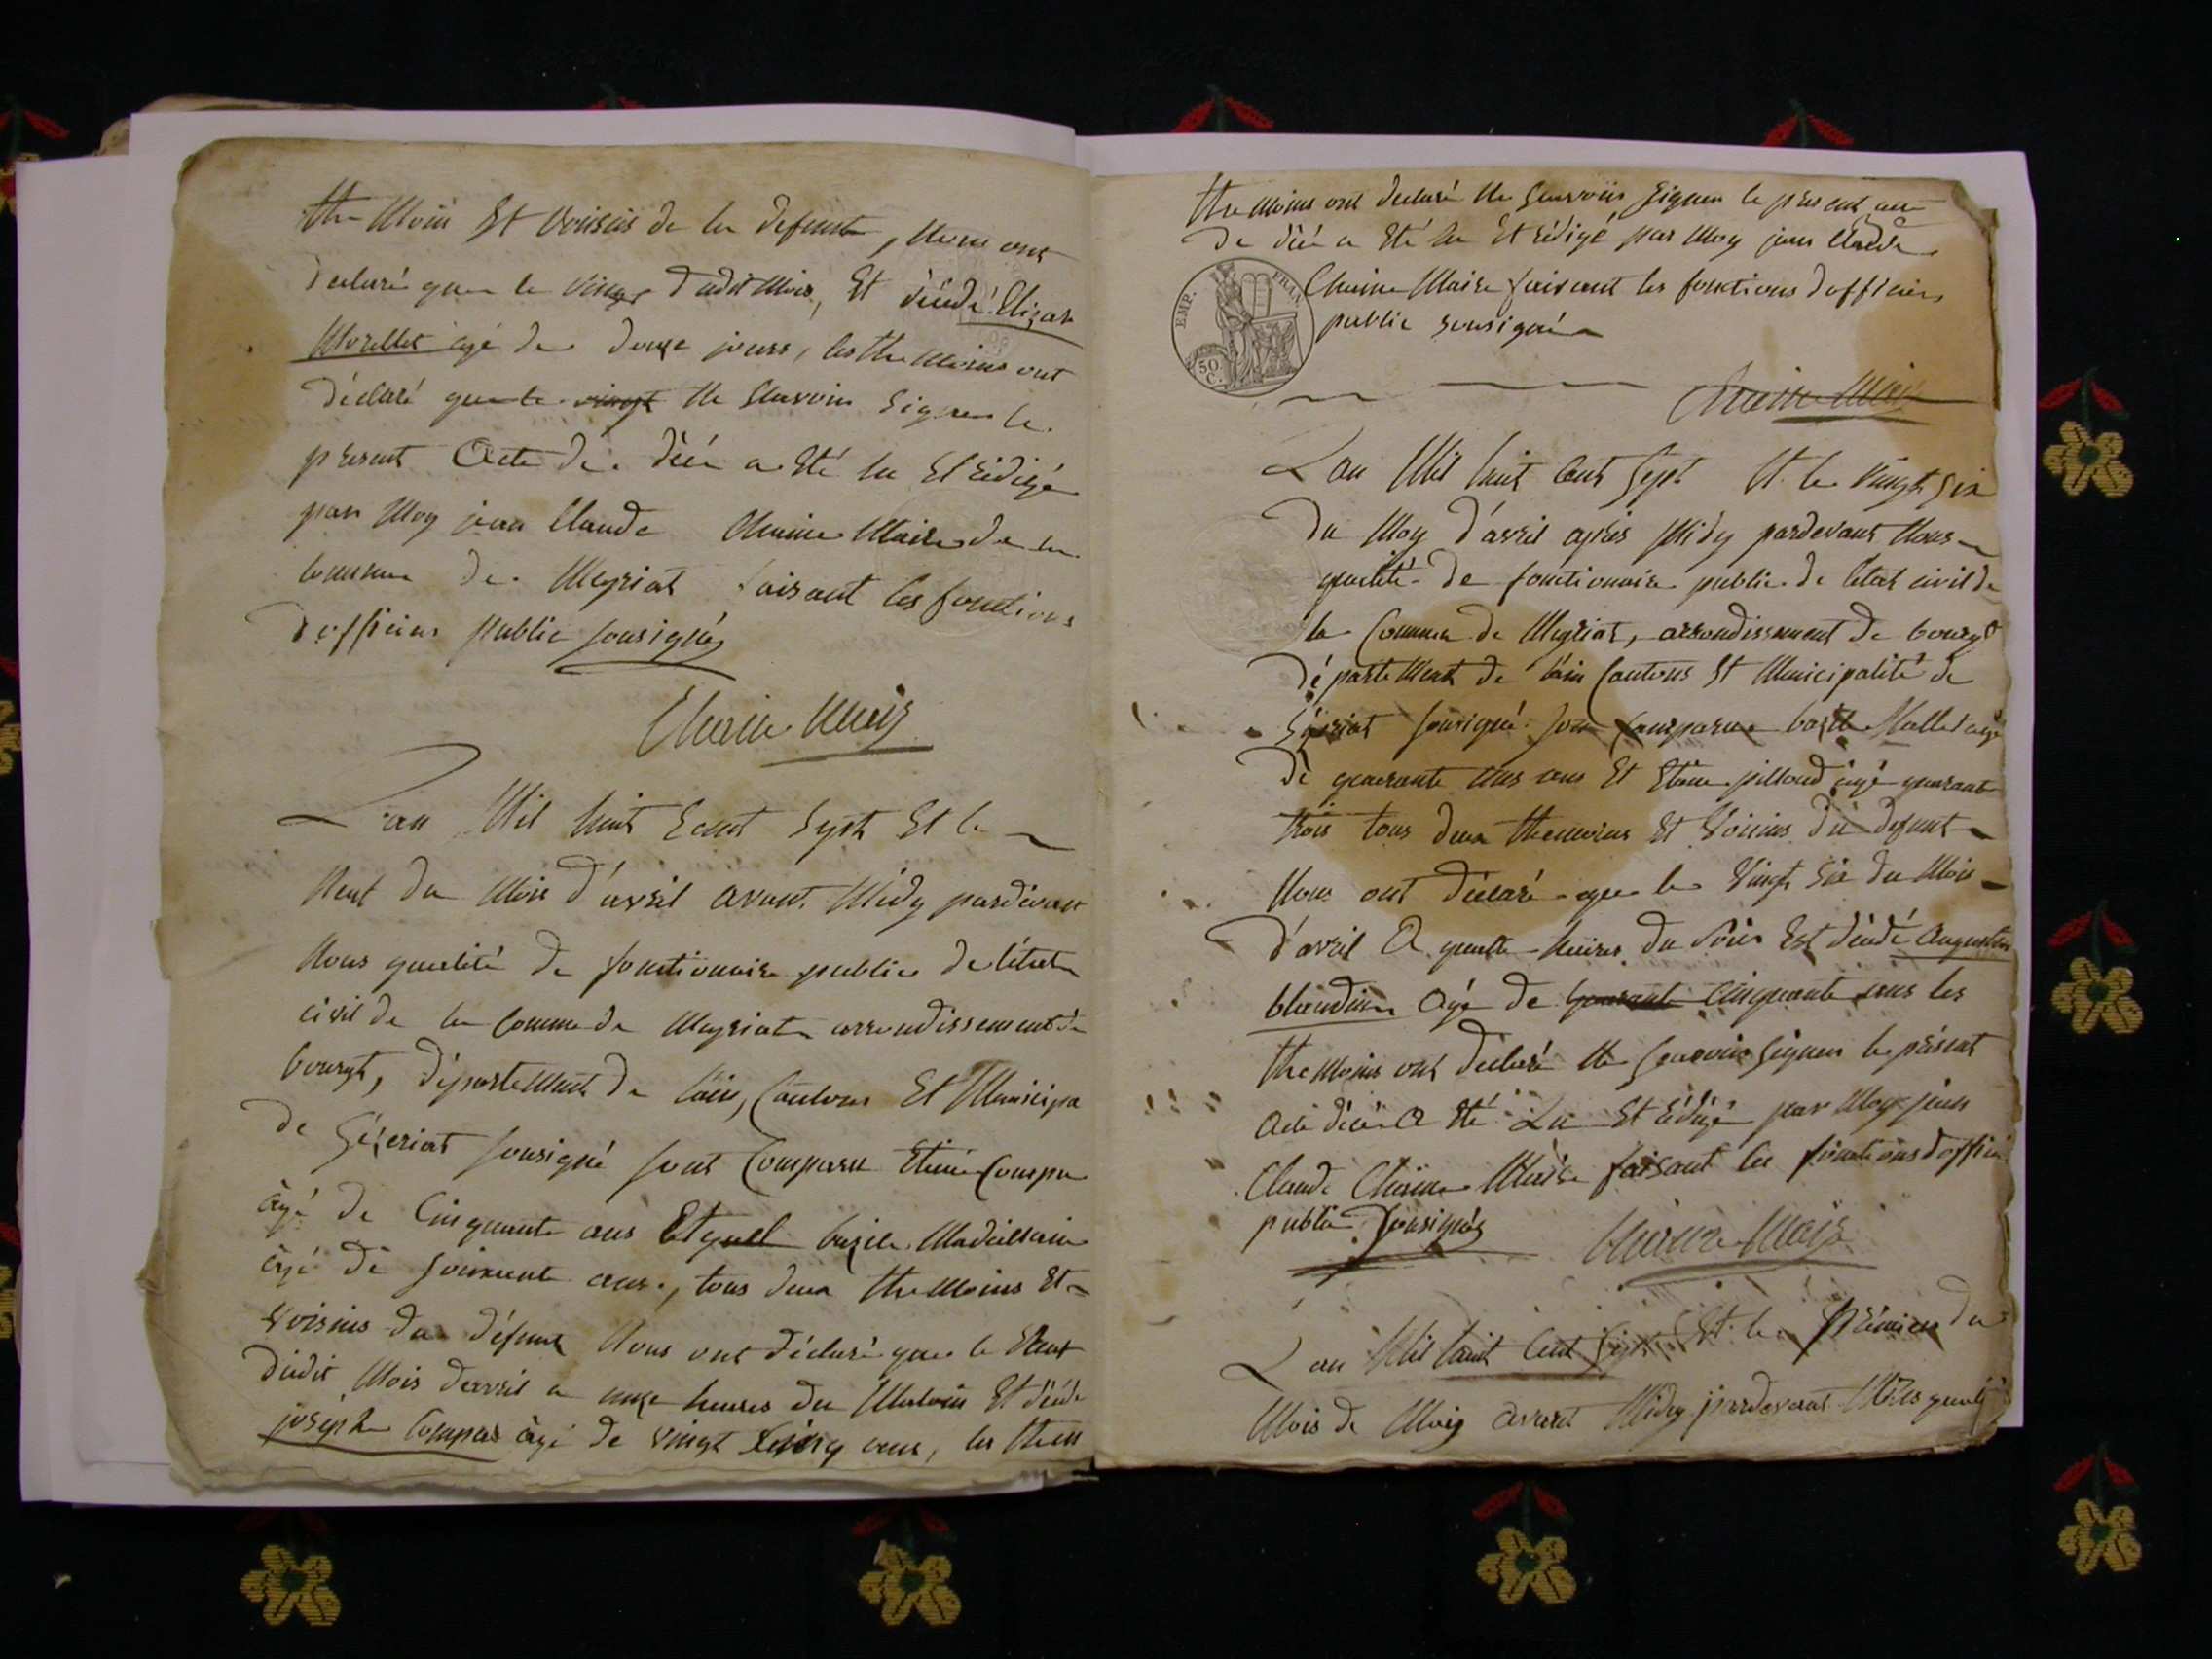 themoin Et voisins de la defunte, Nous ont
declaré que le vingt dudit Mois, Et décédé Elizab
Morellet agé de douze jours, les themoins ont
déclaré que le vingt Ne Scavoir Signer le
présent Acte de décé a Eté lu Et Rédigé
par Moy jean Claude Maire de la
commune de Meyriat faisant les fonctions
dofficier public sousigné
Maire
L'an Mil huit Cent Sept Et le
Neuf du Mois d'avril avant Midy pardevant
Nous qualité de fonctionnaire public de létat
civil de la Commune de Meyriat arrondissement de
bourgt, département de lain, Cantons Et Municipa
de Séizeriat sousigné sont Comparu Etiene Compa
àgé de Cinquante ans Et quel bazile
àgé de soixante ans, tous deux themoins Et
voisins du défunt Nous ont déclaré que le Neuf
dudit Mois davril a onze heures du Matein Et décédé
joseph Compas àgé de vingt Cinq ans, les them
themoins ont declaré Ne Scavoir Signer le présent acte
de décé a Eté lu Et rédigé par Moy jean Claude
Maire faisant les fonctions dofficier
public sousigné
EMP. FRAN.
50 C.
Maire
L'an Mil huit Cent Sept Et le vingt six
du Moy d'avril après Midy pardevant Nous
qualité de fonctionnaire public de létat civil de
la Commune de Meyriat, arrondissement de bourgt
département de láin Cantons Et Municipalité de
Séizeriat sousigné son comparue bazile Mallet agé
de quarante ans Et Etiene pilloud àgé quarante
trois tous deux themoins Et Voisins du defunt
Nous ont déclaré que le Vingt Six du Mois
d'avril A quatre heures du Soir Est décédé augustin
blandin Agé de quarante Cinquante ans les
themoins ont declaré Ne Scavoir Signer le présent
acte décé A Eté Lu Et Rédigé par Moy jean
Claude Maire faisant les fonctions doffici
public sousigné
Maire
L'an Mil huit Cent Sept Et le Prémier du
Mois de May avant Midy pardevant Nous qualité